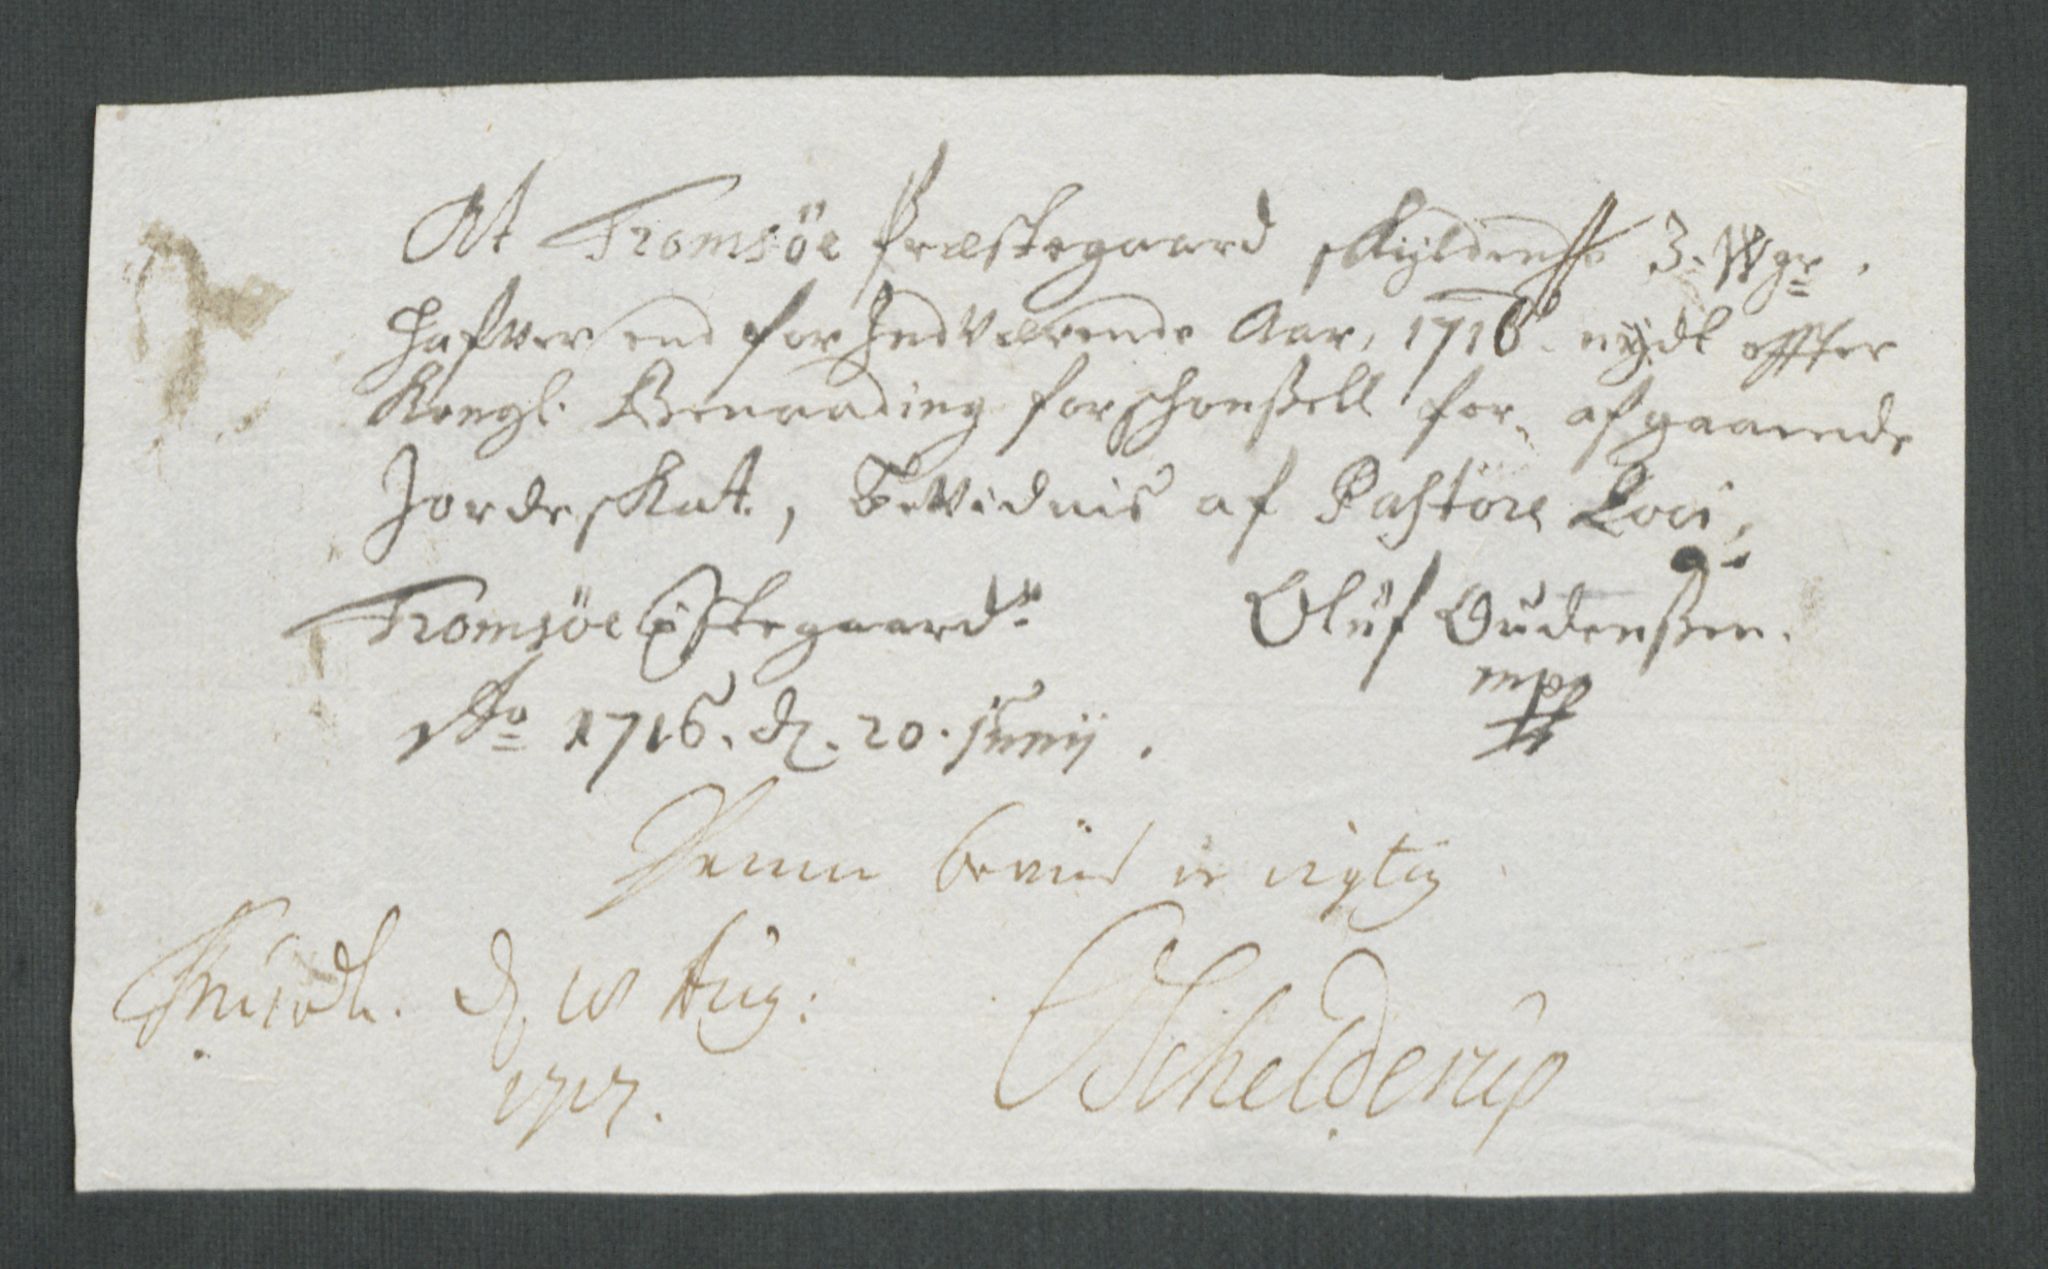 At Tromsöe Præstegaard skyldendse 3. Wgr.
Hafver end for Indværende Aar, 1716. nÿdt effter
Kongl. Benaading forschonßell for afgaaende
Jordeskat, Bevidnis af Pastore Loci,
Tromsöe Præstegaard
Oluf Oudenßen.
mpp
Ao 1716. d. 20. Junij.
Denne beviis er rigtig
d. 18 Aug:
1717.
Schelderup